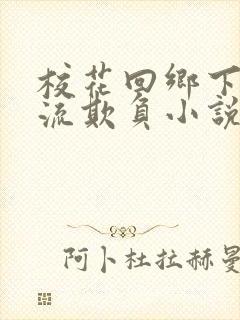 校花回鄉下
流欺負小說
阿卜杜拉赫曼